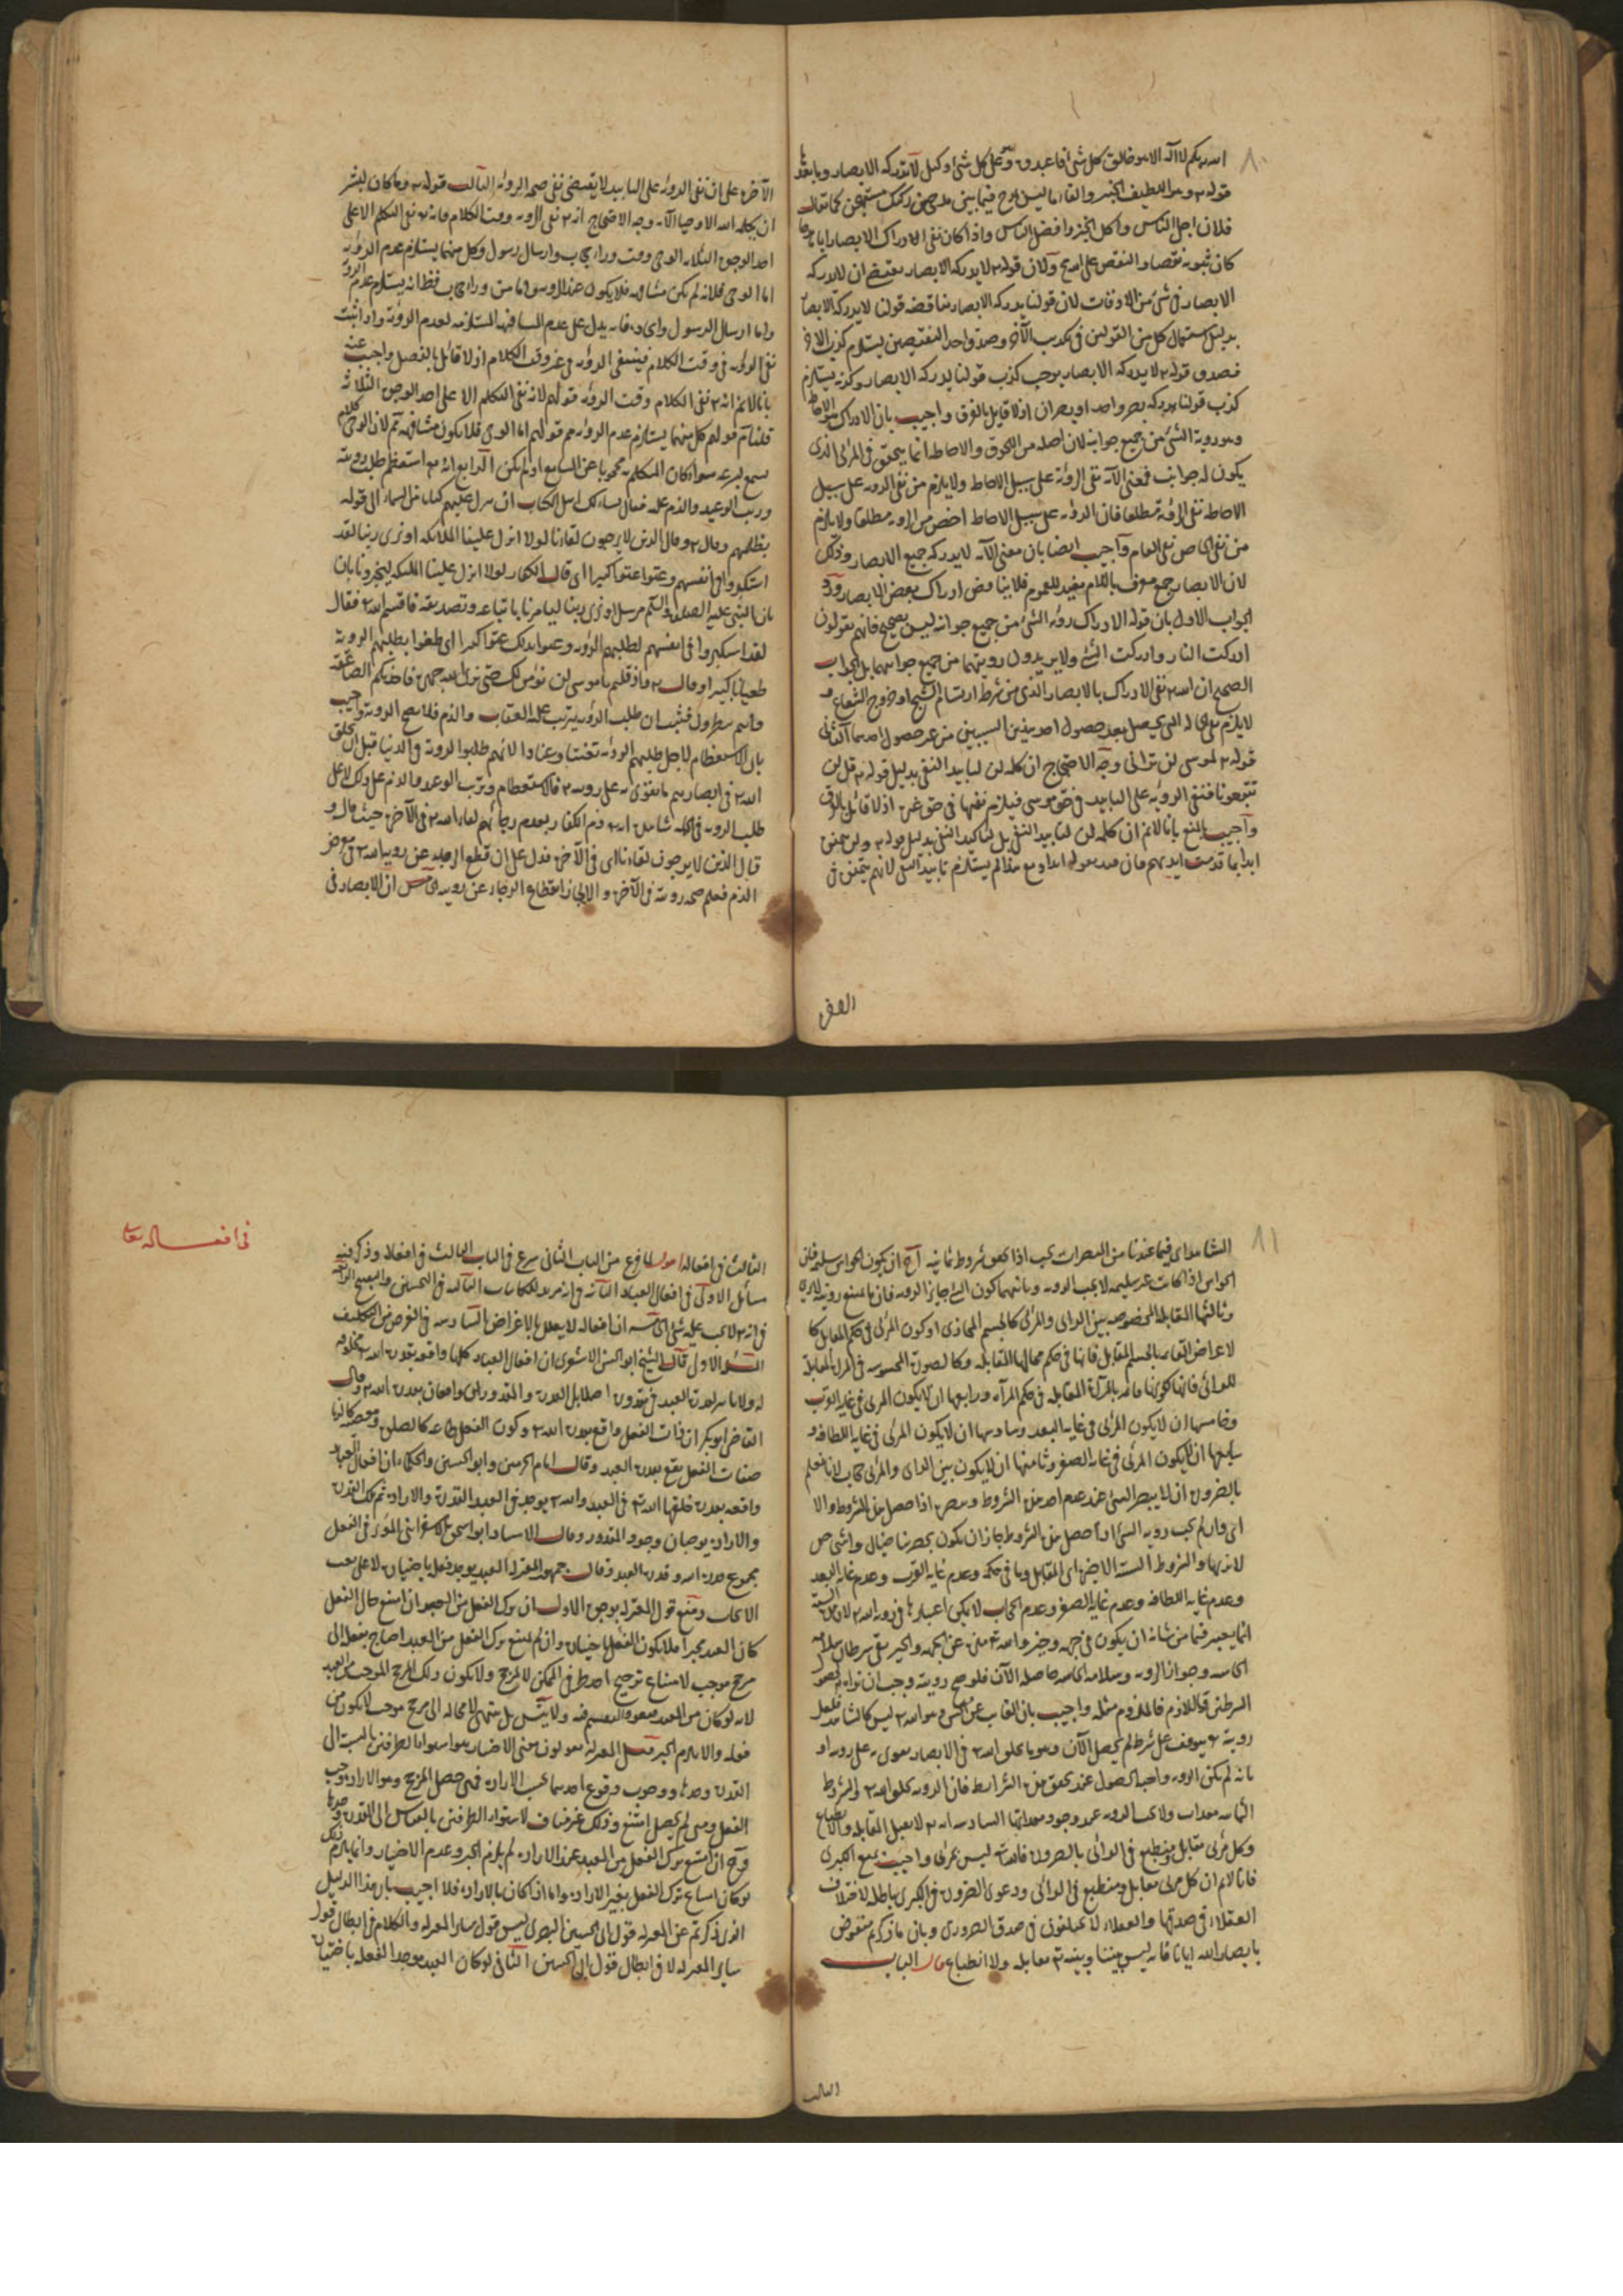 ٨٠
لا اله الا هو خالق كل شئ فاعبدوه وهو على كل شئ وكيل لا تدركه الابصار وما بعده
قوله وهو اللطيف الخبير والقاء ما ليس بمدح فيما بين
فلان اجل الناس وآكل الخبز وافضل الناس واذا كان نفى الادراك الابصار اياه مدحا
كان ثبوته نقصا والنقص على الله مح ولان قوله لا يدركه الابصار يقتضى ان لا يدركه
الابصار فى شئ من الاوقات لان قولنا يدركه الابصار يناقضه قولنا لا يدركه الابصار
بدليل استعمال كل من القولين فى تكذيب الآخر وصدق احد النقيضين يستلزم كذب الاخر
فصدق قوله لا يدركه الابصار يوجب كذب قولنا يدركه الابصار وكذبه يستلزم
كذب قولنا يدركه بصر واحد او بصران اذ لا قايل بالفرق واجيب بان الادراك هو الاحاطة
وهو روية الشئ من جميع جوانبه لان اصله من اللحوق والاحاطة انما يتحقق فى المرئى الذى
يكون له جوانب فمعنى الآية نفى الرؤية على سبيل الاحاطة ولا يلزم من نفى الرؤية على سبيل
الاحاطة نفى الرؤية مطلقا فان الرؤية على سبيل الاحاطة اخص من الرؤية مطلقا ولا يلزم
من نفى الخاص نفى العام وآجيب ايضا بان معنى الآية لا يدركه جميع الابصار وذلك
لان الابصار جمع معرف باللام مفيد للعموم فلا يناقض ادراك بعض الابصار ورد
الجواب الاول بان قوله الادراك رؤية الشئ من جميع جوانبه ليس بصحيح فانهم يقولون
ادركت النار وادركت الشئ ولا يريدون رويتهما من جميع جوانبهما بل الجواب
الصحيح ان الله نفى الادراك بالابصار الذى من شرطه ارتسام الشبح او خروج الشعاع و
لا يلزم نفى الحالة التى يحصل بعد حصول احد هذين السببين من غير حصول احدهما الثانى
قوله لموسى لن ترانى وجه الاحتجاج ان كلمة لن لتابيد النفى بدليل قوله قل لن
تتبعونا فنفى الرؤية على التابيد فى حق موسى فيلزم نفيها فى حق غيره اذ لا قائل بالفرق
وآجيب بالمنع بانا لانم ان كلمة لن لتابيد النفى بل لتاكيد النفى بدليل قوله ولن يتمنوه
ابدا بما قدمت ايديهم فان قيد بقوله ابدا ومع هذا لم يستلزم تابيد النفى لانهم يتمنونه فى
الآخرة
الآخرة على ان نفى الرؤية على التابيد لا يقتضى نفى صحة الرؤية الثالث قوله وما كان لبشر
ان يكلمه الله الا وحيا الآية وجه الاحتجاج انه نفى الرؤية وقت الكلام فانه نفى التكلم الا على
احد الوجوه الثلاثة الوحى ومن وراء حجاب وارسال رسول وكل منها يستلزم عدم الرؤية
اما الوحى فلانه لم يكن مشافهة فلا يكون عند الرؤية واما من وراء حجاب فظ انه يستلزم عدم الرؤية
واما ارسال الرسول فانه يدل على عدم المشافهة المستلزمة لعدم الرؤية واذا ثبت
نفى الرؤية فى وقت الكلام فينتفى الرؤية فى غير وقت الكلام اذ لا قائل بالفصل واجيب عنه
بانا لانم انه نفى الكلام وقت الرؤية قولهم لانه نفى التكلم الا على احد الوجوه الثلاثة
قلنا نم قولهم كل منها يستلزم عدم الرؤية مم قولهم اما الوحى فلا يكون مشافهة نم لان الوحى كلام
يسمع بسرعة سواء كان المتكلم محجوبا عن السامع او لم يكن الرابع انه استعظم طلب رويته
ورتب الوعيد والذم عليه فقال يسألك اهل الكتاب ان تنزل عليهم كتابا من السماء الى قوله
بظلمهم وقال وقال الذين لا يرجون لقاءنا لولا انزل علينا الملائكة او نرى ربنا لقد
استكبروا فى انفسهم وعتوا عتوا كبيرا اى قال الكفار لولا انزل علينا الملئكة ليخبرونا بان
بان النبى عليه الصلوة والسلم مرسل او نرى ربنا ليامرنا باتباعه وتصديقه فاقسم الله فقال
لقد استكبروا فى انفسهم لطلبهم الرؤية وعتوا بذلك عتوا كبيرا اى طغوا بطلبهم الروية
طغيانا كبيرا وقال واذ قلتم يا موسى لن نؤمن لك حتى نرى الله جهرة فاخذتكم الصاعقة
وانتم تنظرون فثبت ان طلب الرؤية يترتب عليه العقاب والذم فلا يصح الروية واجيب
بان الاستعظام لاجل طلبهم الرؤية تعنتا وعنادا لانهم طلبوا الروية فى الدنيا قبل ان يخلق
الله فى ابصارهم ما يقوى به على رويته فالاستعظام وترتب الوعيد والذم على ذلك لا على
طلب الروية فى الجملة
قال الذين لا يرجون لقاءنا اى فى الآخرة فدل على ان قطع الرجاء عن روية الله فى معرض
الذم فعلم صحة رويته فى الآخرة والا لجاز انقطاع الرجاء عن رويته الخامس ان الابصار فى
٨١
الشاهد اى فيما عندنا من المبصرات يجب اذا تحقق شروط ثمانية آح ان يكون الحواس سليمة فان
الحواس اذا كانت غير سليمة لا يجب الروية وثانيها كون الشئ جايز الروية فان ما يمتنع رويته لا يرى
وثالثها المقابلة المخصوصة بين الرائى والمرئى كالجسم المحاذى او كون المرئى فى حكم المقابل كا
لاعراض القائمة بالجسم المقابل فانها فى حكم محالها المقابلة وكالصورة المحسوسة فى المرآة المقابلة
للرائى فانها لكونها قائمة بالمرآة المقابلة فى حكم المرآة ورابعها ان لا يكون المرئى فى غاية القرب
وخامسها ان لا يكون المرئى فى غاية البعد وسادسها ان لا يكون المرئى فى غاية اللطافة و
سابعها ان لا يكون المرئى فى غاية الصغر وثامنها ان لا يكون بين الرائى والمرئى حجاب لانا نعلم
بالضرورة ان لا يبصر الشئ عند عدم احد هذه الشروط ونبصره اذا حصل هذه الشروط والا
اى وان لم يجب روية الشئ اذا حصل هذه الشروط جاز ان يكون بحضرتنا جبال واشخاص
لا نراها والشروط الستة الاخيرة اى المقابلة وما فى حكمه وعدم غاية القرب وعدم غاية البعد
وعدم غاية اللطافة وعدم غاية الصغر وعدم الحجاب لا يمكن اعتبارها فى روية الله لان هذه الستة
انما يعتبر فيما من شانه ان يكون فى جهة وحيز والله منزه عن الجهة والحيز بقى شرطان سلامة
الحاسة وجواز الروية وسلامة الحاسة حاصلة الآن فلو صح رويته وجب ان نراه لحصول
الشرطين واللازم فالملزوم مثله واجيب بان الغايب عن الحس وهو الله ليس كالشاهد فلعل
رويته يتوقف على شرط لم يحصل الآن وهو ما يخلق الله فى الابصار يقوى به على رويته او
بانه لم تكن الروية واجبة الحصول عند تحقق هذه الشرائط فان الروية بخلق الله والشروط
الثمانية معدات ولا يجب الروية عند وجود معداتها السادسة انه لا يقبل المقابلة والانطباع
وكل مرئى مقابل ومنطبع فى الرائى بالضرورة فالله ليس بمرئى واجيب بمنع الكبرى
فانا لانم ان كل مرئى مقابل ومنطبع فى الرائى ودعوى الضرورة فى الكبرى باطلة لاختلاف
العقلاء فى صدقها والعقلاء لا يختلفون فى صدق الضرورى وبان ما ذكرتم منقوض
بابصار الله ايانا فانه ليس بيننا وبينه مقابلة ولا انطباع قال الباب
الثالث
فى افعاله تعالى
الثالث فى افعاله اقول لما فرغ من الباب الثانى شرع فى الباب الثالث فى افعاله وذكر فيه
مسائل الاولى فى افعال العباد الثانية فى انه مريد للكائنات الثالثة فى التحسين والتقبيح الرابعة
فى انه لا يجب عليه شئ الخامسة ان افعاله لا يعلل بالاغراض السادسة فى الغرض من التكليف
الاولى قال الشيخ ابو الحسن الاشعرى ان افعال العباد كلها واقعة بقدرة الله مخلوقة
له ولا تاثير لقدرة العبد فى مقدوره اصلا بل القدرة والمقدور واقعان بقدرة الله وقال
القاضى ابو بكر ان ذات الفعل واقع بقدرة الله وكون الفعل طاعة كالصلوة ومعصية كالزنا
صفات الفعل يقع بقدرة العبد وقال امام الحرمين وابو الحسين والحكماء ان افعال العباد
واقعة بقدرة خلقها الله فى العبد والله يوجد فى العبد القدرة والارادة ثم تلك القدرة
والارادة يوجبان وجود المقدور وقال الاستاد ابو اسحق الاسفراينى المؤثر فى الفعل
مجموع قدرة الله وقدرة العبد وقال جمهور المعتزلة العبد يوجد فعله باختياره لا على نعت
الايجاب ومنع قول المعتزلة بوجوه الاول ان ترك الفعل من العبد ان امتنع حال الفعل
كان العبد مجبرا فلا يكون الفعل باختياره وان لم يمتنع ترك الفعل من العبد احتاج فعله الى
مرجح موجب لامتناع ترجيح احد طرفى الممكن لا لمرجح ولا يكون ذلك المرجح الموجب من العبد
لانه لو كان من العبد يعود التقسيم فيه ولا يتسل بل ينتهى لا محالة الى مرجح موجب لا يكون من
فعله والا يلزم الجبر قيل المعتزلة يقولون معنى الاختيار هو استواء الطرفين بالنسبة الى
القدرة وحدها ووجوب وقوع احدهما بحسب الارادة فمتى حصل المرجح وهو الارادة وجب
الفعل ومتى لم يحصل امتنع وذلك غير مناف لاستواء الطرفين بالقياس الى القدرة وحدها
وح ان امتنع ترك الفعل من العبد عند الارادة لم يلزم الجبر وعدم الاختيار وانما يلزم ذلك
لو كان امتناع ترك الفعل بغير الارادة واما اذا كان بالارادة فلا اجيب بان هذا الدليل
الذى ذكرتم عن المعتزلة قول ابى الحسين البصرى ليس قول ساير المعتزلة والكلام فى ابطال قول
ساير المعتزلة لا فى ابطال قول ابى الحسين الثانى لو كان العبد موجدا لفعله باختياره